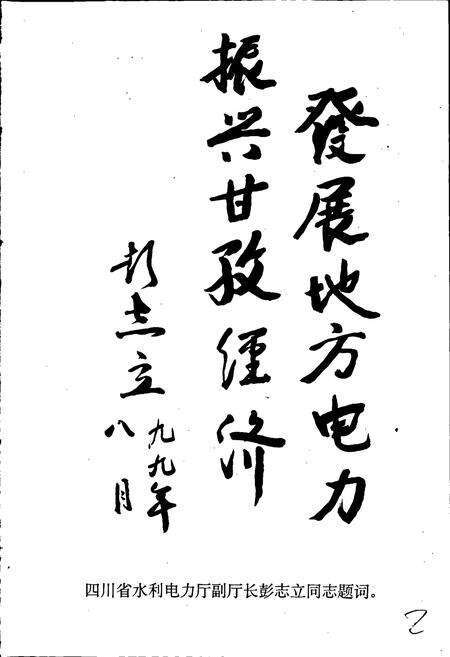 發展地方电力
振兴甘孜经济
彭志立
九九年
八月
四川省水利电力厅副厅长彭志立同志题词。
2